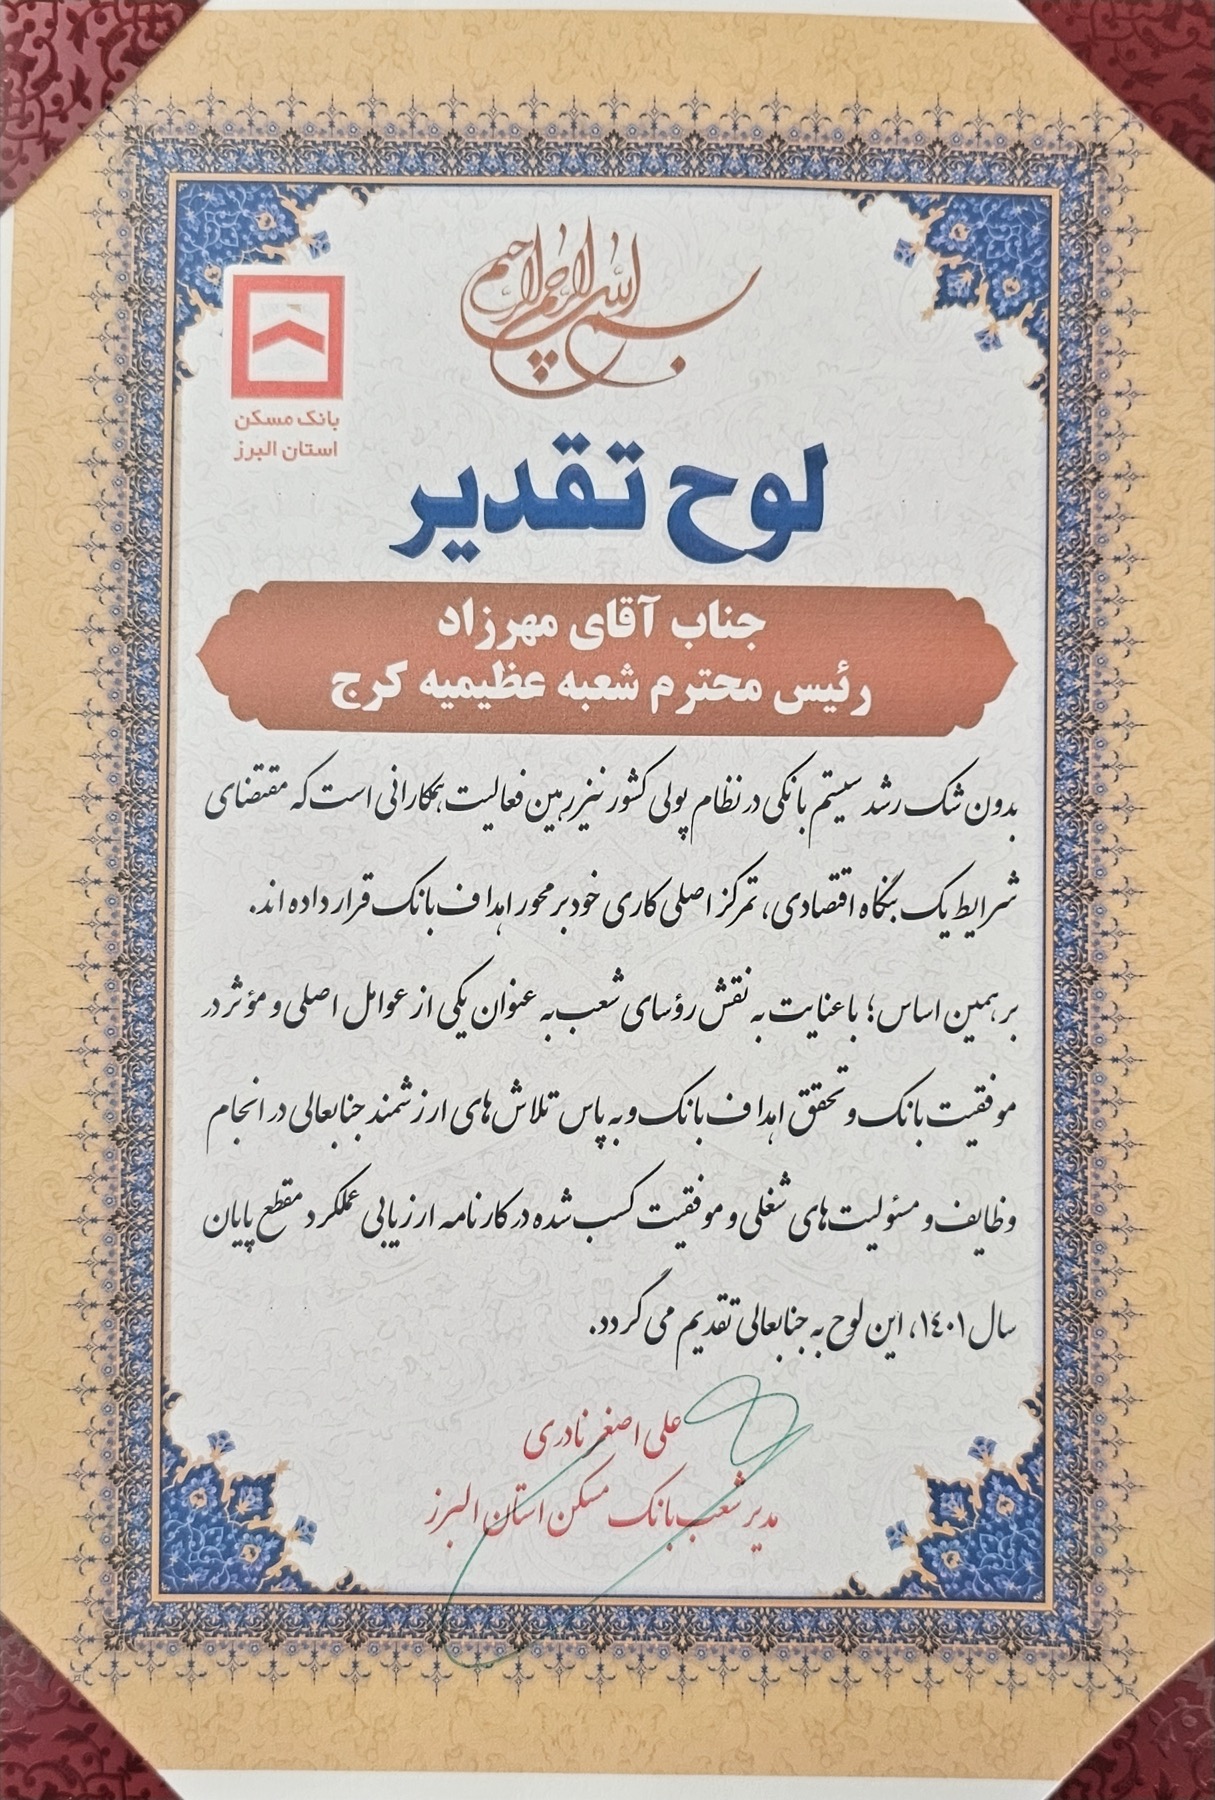 بسم الله الرحمن الرحیم
بانک مسکن
استان البرز
لوح تقدیر
جناب آقای مهرزاد
رئیس محترم شعبه عظیمیه کرج
بدون شک رشد سیستم بانکی در نظام پولی کشور نیز رهین فعالیت همکارانی است که مقتضای
شرایط یک بنگاه اقتصادی، تمرکز اصلی کاری خود بر محور اهداف بانک قرار داده اند.
بر همین اساس؛ با عنایت به نقش رؤسای شعب به عنوان یکی از عوامل اصلی و مؤثر در
موفقیت بانک و تحقق اهداف بانک و به پاس تلاش های ارزشمند جنابعالی در انجام
وظایف و مسئولیت های شغلی و موفقیت کسب شده در کارنامه ارزیابی عملکرد مقطع پایان
سال ۱۴۰۱، این لوح به جنابعالی تقدیم می گردد.
علی اصغر نادری
مدیر شعب بانک مسکن استان البرز